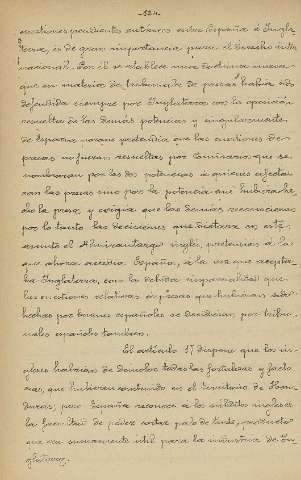 -124-
cuestiones pendientes entonces entre España é Ingla-
terra, és de gran importancia para el Derecho inter-
nacional. Por él se establece una doctrina nueva
que en materia de tribunales de presas había sido
defendida siempre por Inglaterra con la oposición
resuelta de las demás potencias y singularmente
de España nacion pretendia que las cuestiones de
presas no fueran resueltas por comisarios que se
nombraran por las dos potencias á quienes afectan
ran las presas sino por la potencia que hubiera he-
cho la presa, y exigia que las demás reconocieran
por lo tanto las decisiones que dictara en este
asunto el Almirantazgo inglés, pretension á la
que ahora accedia España, á la vez que acepta-
ba Inglaterra, con la debida reciprocidad que
las cuestiones relativas á presas que hubieran sido
hechas por buques españoles se decidieran por tribu-
nales españoles tambien.
El artículo 17 dispone que los in-
gleses habrían de demoler todas las fortalezas y facto
rias, que hubieran construido en el territorio de Hon-
duras, pero España reconoce á los súbditos ingleses
la facultad de poder cortar palo de tinte, producto
que era sumamente util para la industria de In-
glaterra.